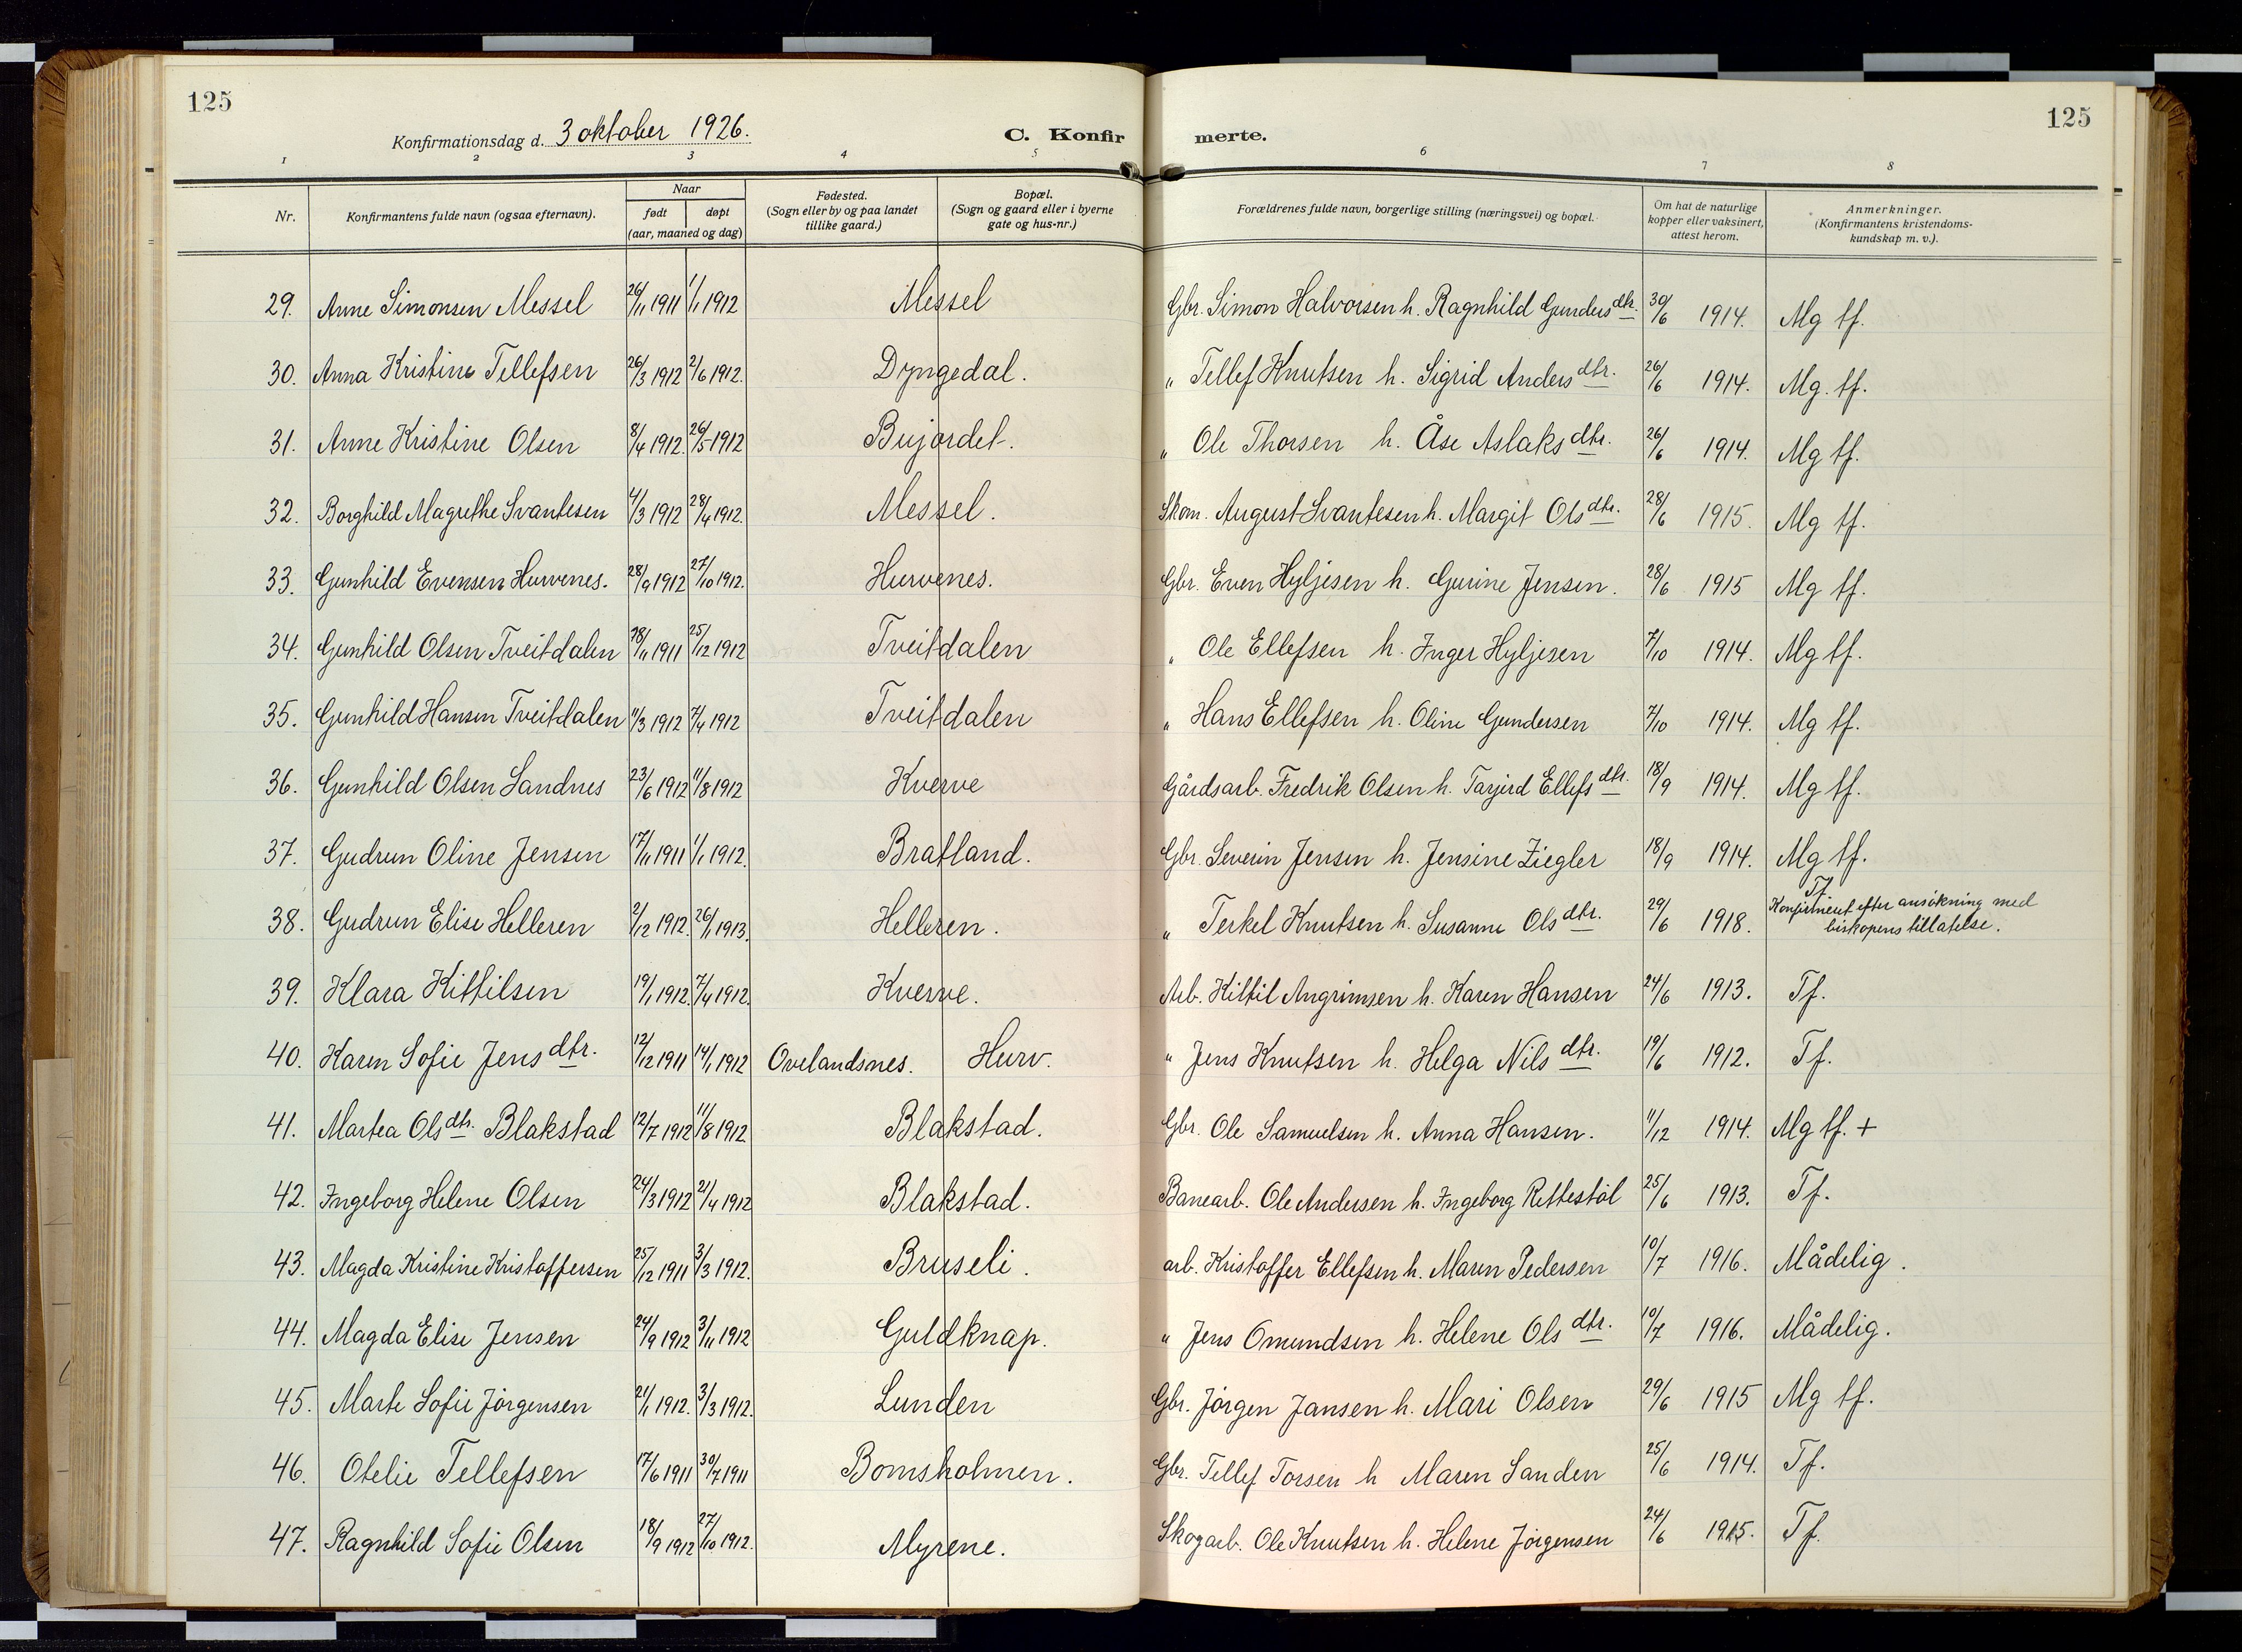 125
125
Konfirmationsdag d. 3 oktober 1926.
C. Konfir merte.
1 2 3 4 5 6 7 8
Nr. Konfirmantens fulde navn (ogsaa efternavn). Naar født døpt (aar, maaned og dag) Fødested. (Sogn eller by og paa landet tillike gaard.) Bopæl. (Sogn og gaard eller i byerne gate og hus-nr.) Forældrenes fulde navn, borgerlige stilling (næringsvei) og bopæl. Om hat de naturlige kopper eller vaksinert, attest herom. Anmerkninger. (Konfirmantens kristendoms-kundskap m. v.).
29. Anne Simonsen Messel 26/11 1911 1/1 1912 Messel Gbr. Simon Halvorsen h. Ragnhild Gundersdtr. 30/6 1914. Mg tf.
30. Anna Kristine Tellefsen 26/3 1912 2/6 1912. Dyngedal. " Tellef Knutsen h. Sigrid Andersdtr. 26/6 1914. Mg. tf.
31. Anne Kristine Olsen 8/4 1912. 26/5 1912 Bujordet. " Ole Thorsen h. Åse Aslaksdtr. 26/6 1914. Mg tf.
32. Borghild Magrethe Svantesen 4/3 1912 28/4 1912. Messel. Skom. August Svantesen h. Margit Olsdtr. 28/6 1915. Mg tf.
33. Gunhild Evensen Hurvenes. 28/9 1912 27/10 1912. Hurvenes. Gbr. Even Hyljesen h. Gurine Jensen. 28/6 1915 Mg tf.
34. Gunhild Olsen Tveitdalen 18/11 1911 25/12 1912 Tveitdalen " Ole Ellefsen h. Inger Hyljesen 7/10 1914. Mg tf.
35. Gunhild Hansen Tveitdalen 11/3 1912 7/4 1912 Tveitdalen " Hans Ellefsen h. Oline Gundersen 7/10 1914. Mg tf.
36. Gunhild Olsen Sandnes 23/6 1912 11/8 1912 Kverve Gårdsarb. Fredrik Olsen h. Tarjerd Ellefsdtr. 18/9 1914. Mg tf.
37. Gudrun Oline Jensen 17/11 1911 1/1 1912. Bratland. Gbr. Severin Jensen h. Jensine Ziegler 18/9 1914. Mg tf.
38. Gudrun Elise Helleren 2/12 1912. 26/1 1913. Helleren. " Terkel Knutsen h. Susanne Olsdtr. 29/6 1918. Tf. Konfirmert efter ansökning med biskopens tillatelse.
39. Klara Kittilsen 19/1 1912. 7/4 1912. Kverve. Arb. Kittil Angrimsen h. Karen Hansen 24/6 1913. Tf.
40. Karen Sofie Jensdtr. 12/12 1911 14/1 1912 Ovelandsnes. Hurv. " Jens Knutsen h. Helga Nilsdtr. 19/6 1912. Tf.
41. Martea Olsdtr. Blakstad 12/7 1912 11/8 1912 Blakstad. Gbr. Ole Samuelsen h. Anna Hansen. 11/12 1914. Mg tf. +
42. Ingeborg Helene Olsen 24/3 1912 21/4 1912 Blakstad. Banearb. Ole Andersen h. Ingeborg Rettestöl 25/6 1913. Tf.
43. Magda Kristine Kristoffersen 25/12 1911 3/3 1912. Bruseli. arb. Kristoffer Ellefsen h. Maren Pedersen 10/7 1916. Mådelig.
44. Magda Elise Jensen 24/9 1912 3/11 1912 Guldknap. " Jens Omundsen h. Helene Olsdtr. 10/7 1916. Mådelig.
45. Marte Sofie Jörgensen 21/1 1912. 3/3 1912. Lunden Gbr. Jörgen Jansen h. Mari Olsen 29/6 1915 Mg tf.
46. Otelie Tellefsen 17/6 1911 30/7 1911 Bomsholmen. Gbr. Tellef Torsen h Maren Sanden 25/6 1914. Tf.
47. Ragnhild Sofie Olsen 18/9 1912 27/10 1912. Myrene. Skogarb. Ole Knutsen h. Helene Jörgensen 24/6 1915. Tf.